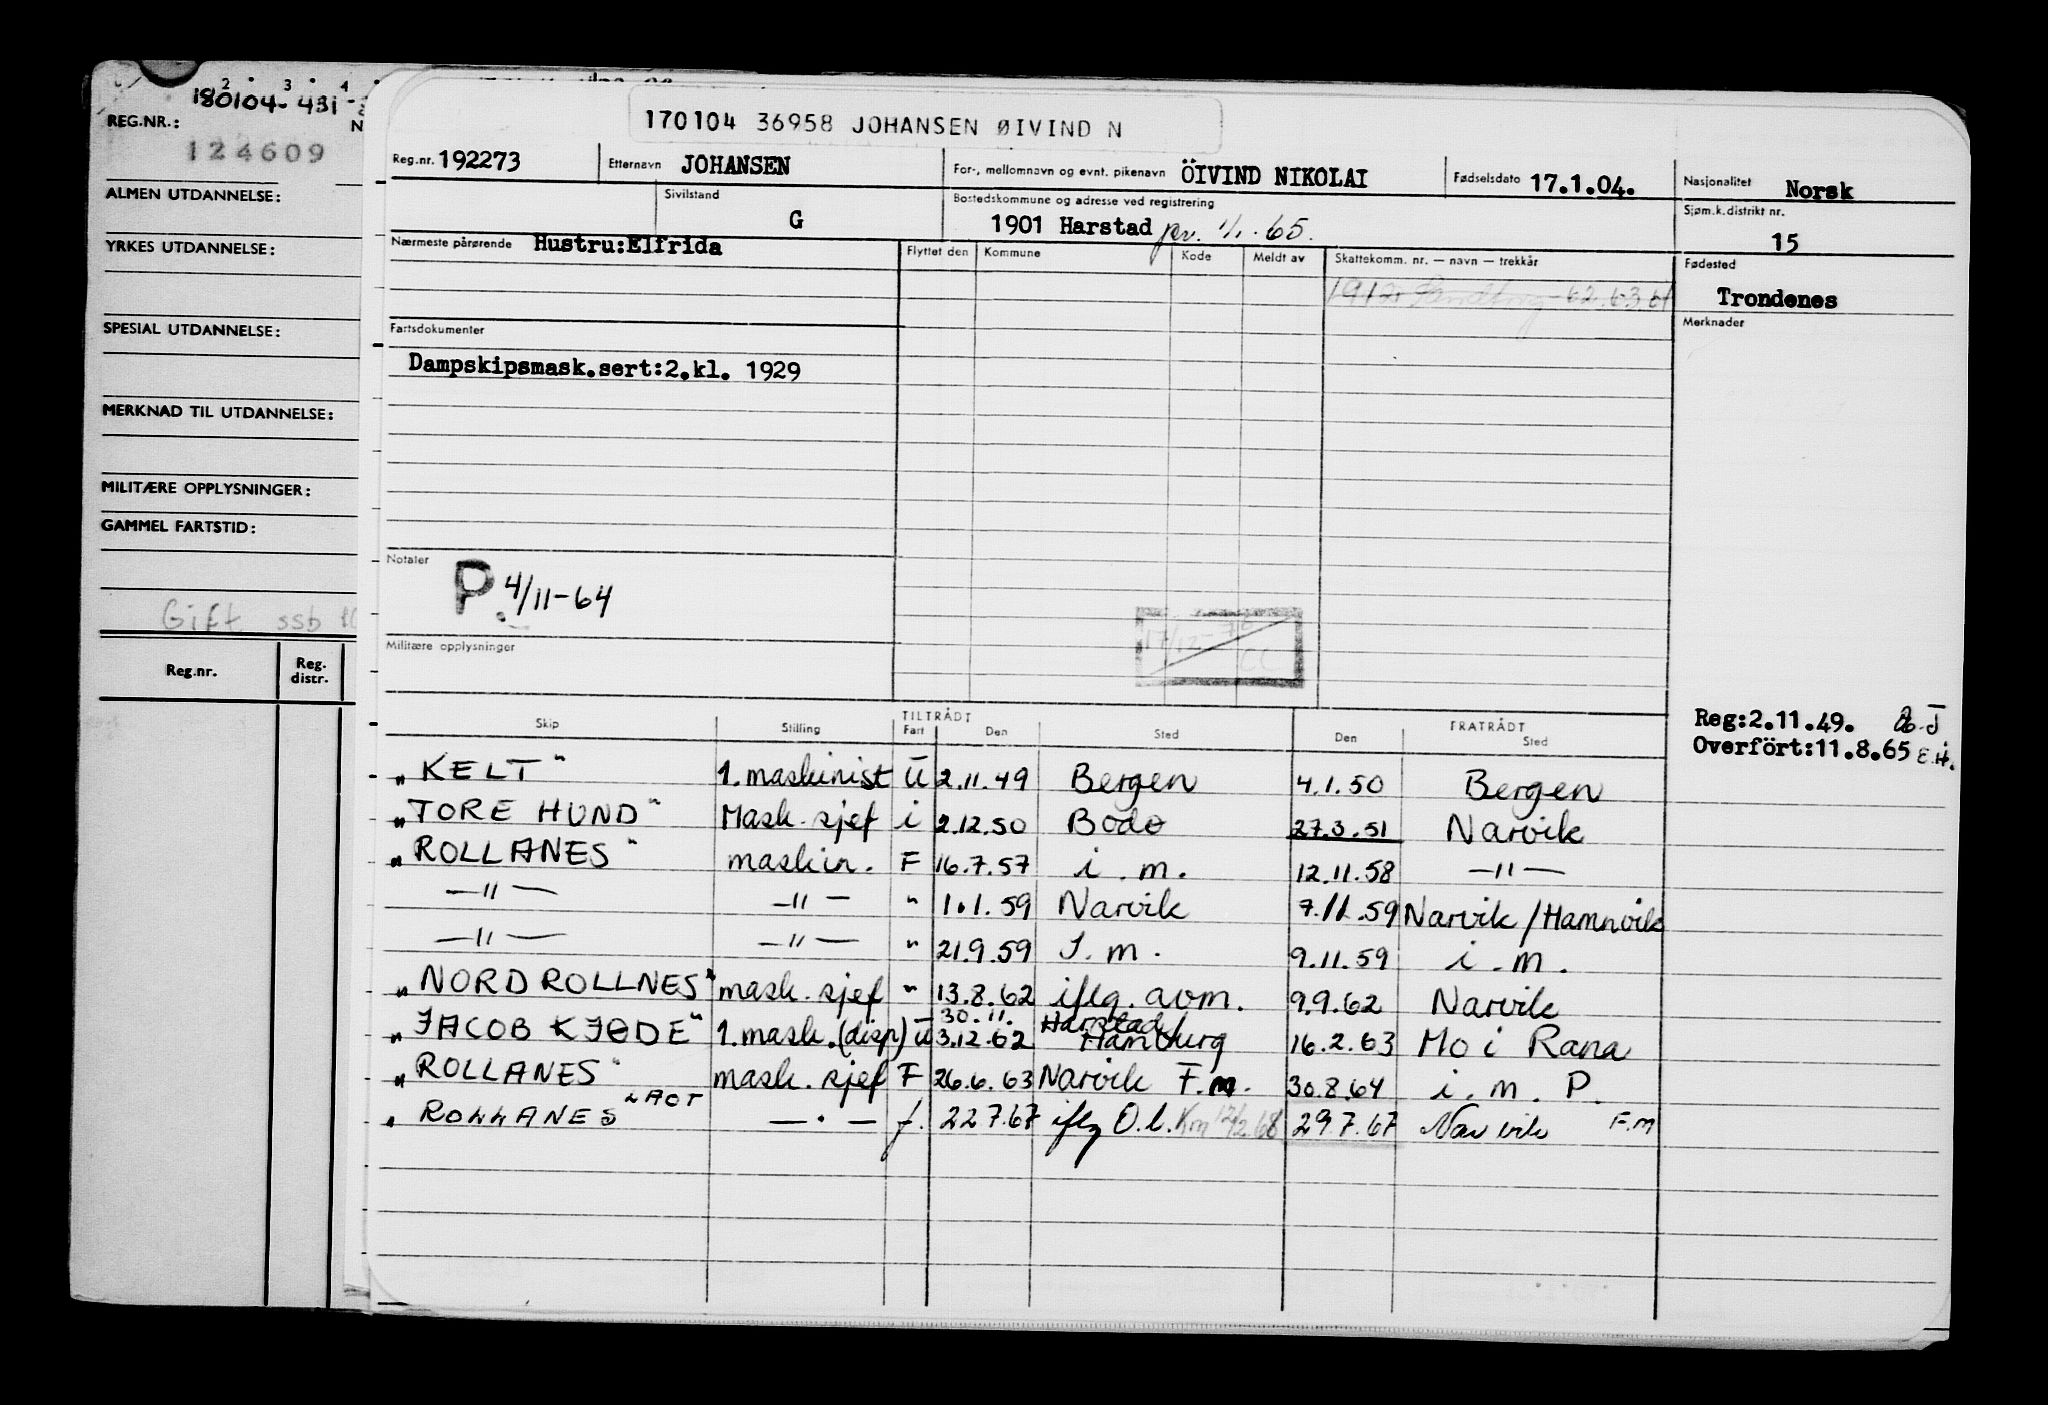 2 3 4
180104-431-
REG.NR.:
N
124609
ALMEN UTDANNELSE:
YRKES UTDANNELSE:
SPESIAL UTDANNELSE:
MERKNAD TIL UTDANNELSE:
MILITÆRE OPPLYSNINGER:
GAMMEL FARTSTID:
Gift ssb
Reg.nr. Reg. distr.
170104 36958 JOHANSEN ØIVIND N
Reg.nr. 192273 Etternavn JOHANSEN For-, mellomnavn og evnt. pikenavn ÖIVIND NIKOLAI Fødselsdato 17.1.04. Nasjonalitet Norsk
Sivilstand G Bostedskommune og adresse ved registrering 1901 Harstad pr. 1/1-65. Sjøm.k.distrikt nr. 15
Nærmeste pårørende Hustru:Elfrida Flyttet den Kommune Kode Meldt av Skattekomm. nr. — navn — trekkår Fødested
1912 62.63.64 Trondenes
Fartsdokumenter Merknader
Dampskipsmask.sert:2.kl. 1929
Notater
P. 4/11-64
17/12-76 CC
Militære opplysninger
Skip Stilling TILTRÅDT Fart Den Sted Den FRATRÅDT Sted
Reg:2.11.49.
Overfört:11.8.65 E.H.
"KELT" 1.maskinist U 2.11.49 Bergen 4.1.50 Bergen
"TORE HUND" Mask.sjef i 2.12.50 Bodø 27.3.51 Narvik
"ROLLANES" maskin. F 16.7.57 i.m. 12.11.58 —"—
—"— —"— " 1.1.59 Narvik 7.11.59 Narvik/Hamnvik
—"— —"— " 21.9.59 I.m. 9.11.59 i.m.
"NORD ROLLNES" mask.sjef " 13.8.62 iflg. avm. 9.9.62 Narvik
30.11. Harstad/
"JACOB KJØDE" 1.mask.(disp) u 3.12.62 Hamburg 16.2.63 Mo i Rana
"ROLLANES" mask.sjef F 26.6.63 Narvik F.m. 30.8.64 i.m. P.
"ROLLANES" LAOT —"— f. 22 7.67 iflg O.l. Km 12/2.68 29 7.67 Narvik F.M